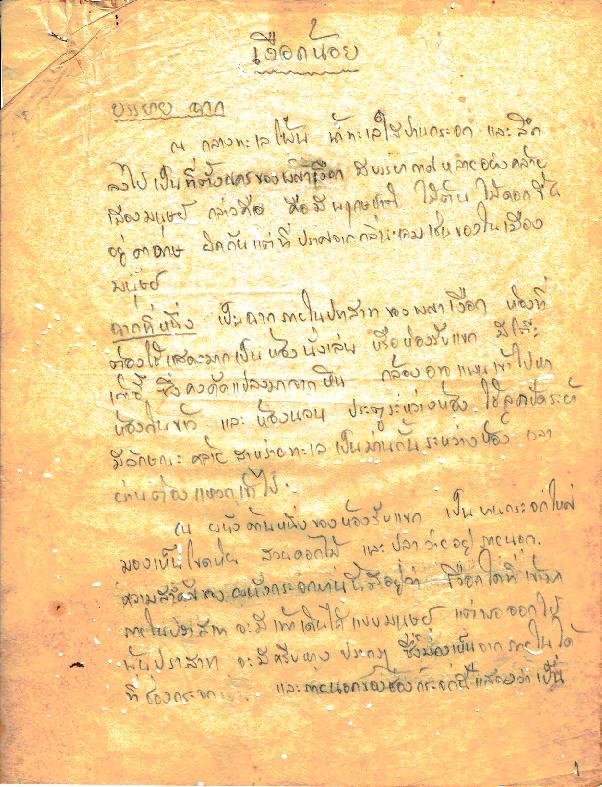 เงือกน้อย
บรรยาย ฉาก
ณ กลางทะเลโพ้น น้ำทะเลใสปานกระจก และลึก
ลงไป เป็นที่ตั้งนครของพญาเงือก มีบรรยากาศหลายอย่างคล้าย
เมืองมนุษย์ กล่าวคือ คือมี พฤกษชาติ ไม้ต้น ไม้ดอก ขึ้น
อยู่ดาดาษ ผิดกันแต่ที่ ปราศจากกลิ่นหอมเช่นของในเมือง
มนุษย์
ฉากที่หนึ่ง เป็นฉากภายในปราสาทของพญาเงือก ห้องที่
ต้องใช้แสดงมากเป็นห้องนั่งเล่น หรือห้องรับแขก มีโต๊ะ
เก้าอี้ ซึ่งคงดัดแปลงมาจากหิน กล้องอาจแพนเข้าไปหา
ห้องกินข้าว และห้องนอน ประตูระหว่างห้อง ใช้ลูกปัดระย้า
มีลักษณะคล้ายสาหร่ายทะเล เป็นม่านกั้นระหว่างห้อง เวลา
ผ่านต้องแหวกเข้าไป.
ณ ผนังด้านหนึ่งของห้องรับแขก เป็นบานกระจกใหญ่
มองเห็นโขดหิน สวนดอกไม้ และปลาว่ายอยู่ภายนอก.
ความสำคัญของผนังกระจกบานนี้มีอยู่ว่า เงือกใดที่เข้ามา
ภายในปราสาท จะมีเท้าเดินได้แบบมนุษย์ แต่พอออกไป
พ้นปราสาท จะมีครีบหาง ปรากฏ ซึ่งมองเห็นจากภายในได้
ที่ช่องกระจก และภายนอกของช่องกระจกนี้แสดงว่าเป็น
1